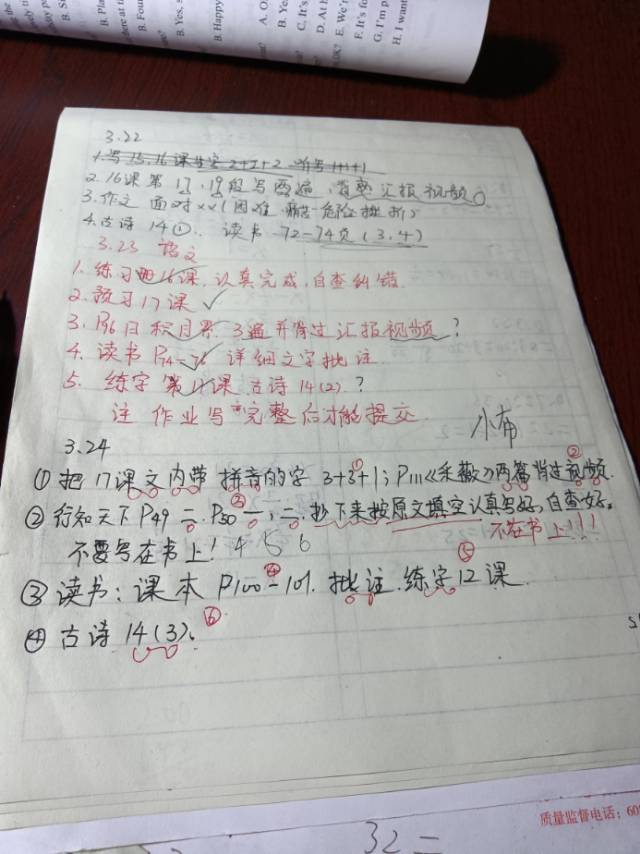 B. Pla
B. Fou
B. Yes, s
B. Happy
A. O
B. Ye
C. It's
D. At
E. We'r
F. It's
G. I'm p
H. I want
3.22
1.写15,16课生字2+2+2 听写1+1+1
2.16课第17,19段写两遍,背熟汇报视频
3.作文 面对××(困难 危险 挫折)
4.古诗14①. 读书 72-74页(3.4)
3.23 语文
1.练习册16课.认真完成,自查纠错.
2.预习17课✓
3.P96日积月累.3遍并背过汇报视频?
4.读书P74-76详细文字批注.
5.练字第11课 古诗14(2)?
注 作业写完整后才能提交
小布
3.24
①把17课文内带拼音的字3+3+1;P111《采薇》两篇背过视频.
②
②行知天下P49二.P50一,二,抄下来按原文填空认真写好,自查好。
③
不要写在书上! 4 5 6 不在书上!!!
③读书:课本P100-101.批注.练字12课
④ ⑤
④古诗14(3)。
⑥
质量监督电话:60
32=